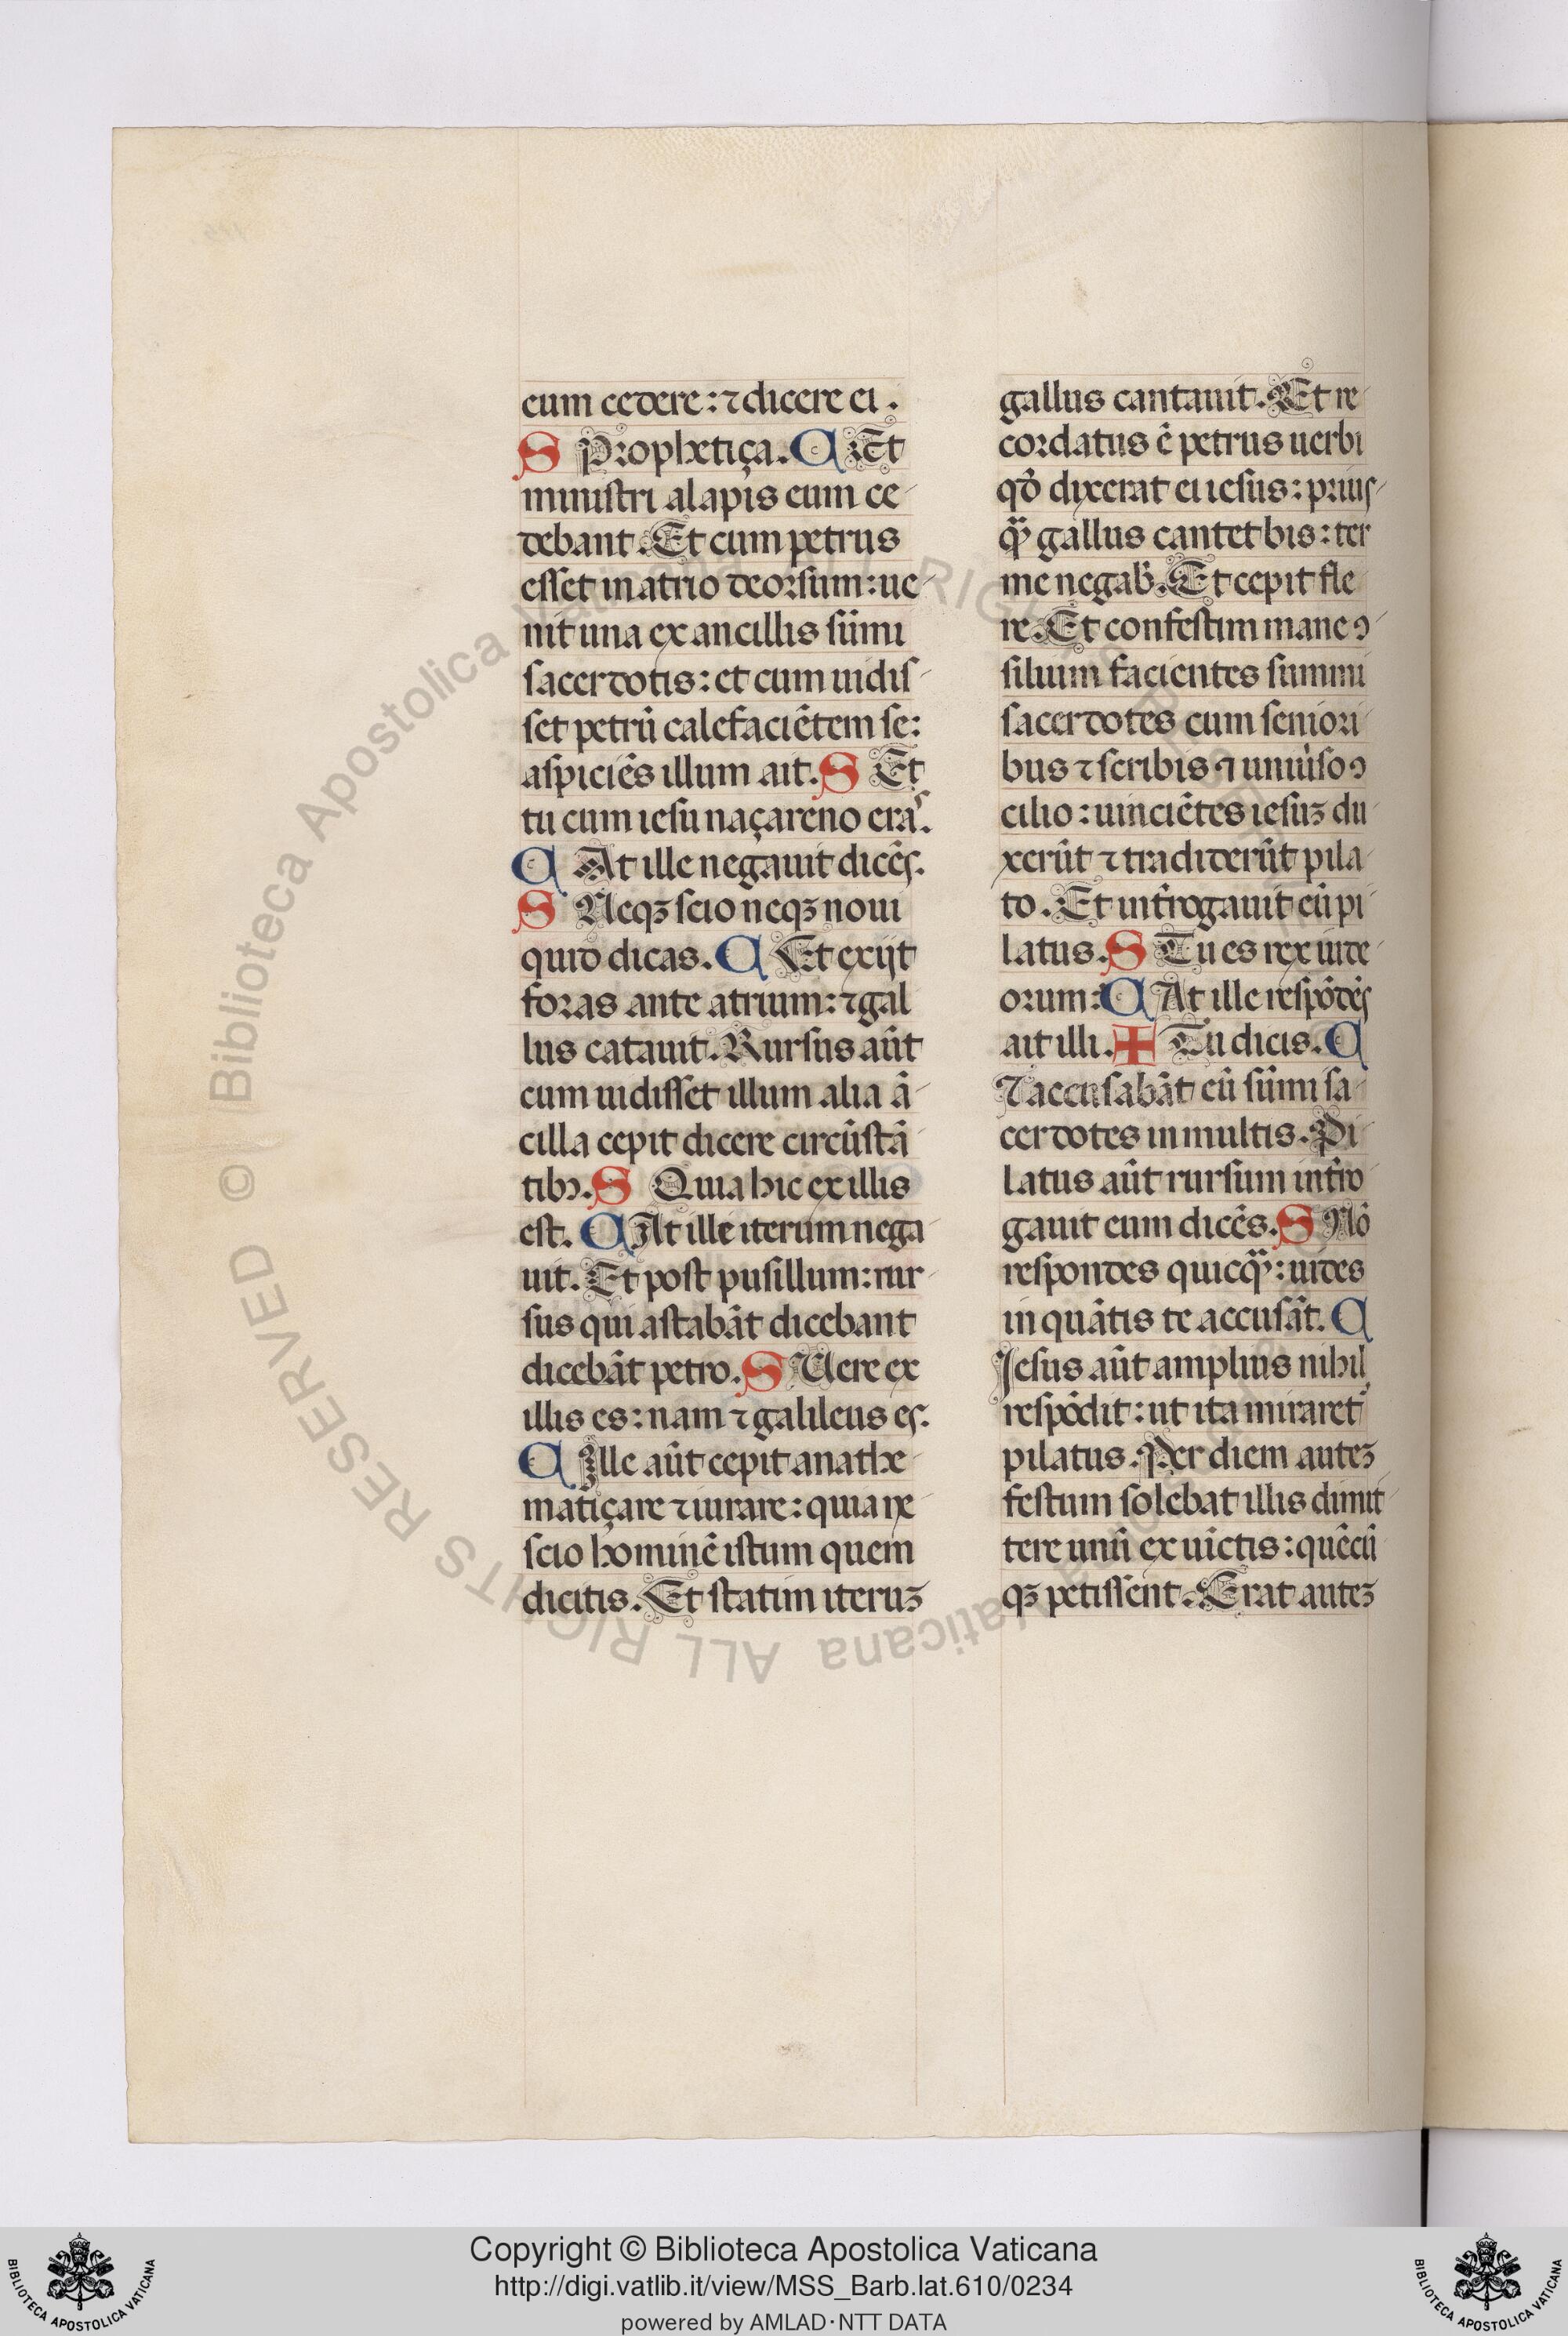 eum cedere : ⁊ dicere ei .
S Prophetiça . C Et
ministri alapis eum ce
debant . Et cum petrus
esset in atrio deorsum : ue
nit una ex ancillis sũmi
sacerdotis : et cum uidis
set petrũ calefaciẽtem se :
aspiciẽs illum ait . S Et
tu cum iesu naçareno eras .
C At ille negauit dicẽs .
S Neqꝫ scio neqꝫ noui
quid dicas . C Et exijt
foras ante atrium : ⁊ gal
lus catauit . Rursus aũt
cum uidisset illum alia ã
cilla cepit dicere circũstã
tibꝫ . S Quia hic ex illis
est . C At ille iterum nega
uit . Et post pusillum : rur
sus qui astabãt dicebant
dicebãt petro . S Uere ex
illis es : nam ⁊ galileus es .
C Ille aũt cepit anathe
matiçare ⁊ iurare : quia ne
scio hominẽ istum quem
dicitis . Et statim iteruꝫ
gallus cantauit . Et re
cordatus ẽ petrus uerbi
qđ dixerat ei iesus : prius
q̃ gallus cantet bis : ter
me negab̃ . Et cepit fle
re . Et confestim mane ꝯ
silium facientes summi
sacerdotes cum seniori
bus ⁊ scribis ⁊ uniũso ꝯ
cilio : uinciẽtes iesuꝫ du
xerũt ⁊ tradiderũt pila
to . Et int̃rogauit eũ pi
latus . S Tu es rex iude
orum : C At ille respõdẽs
ait illi . ✠ Tu dicis . C
⁊ accusabãt eũ sũmi sa
cerdotes in multis . Pi
latus aũt rursum int̃ro
gauit eum dicẽs . S Nõ
respondes quicq̃ : uides
in quãtis te accusãt . C
Iesus aũt amplius nihil
respõdit : ut ita miraret᷑
pilatus . Per diem auteꝫ
festum solebat illis dimit
tere unũ ex uĩctis : quẽcũ
qꝫ petissent . Erat auteꝫ
© Biblioteca Apostolica Vaticana ALL RIGHTS RESERVED
Copyright © Biblioteca Apostolica Vaticana
http://digi.vatlib.it/view/MSS_Barb.lat.610/0234
powered by AMLAD·NTT DATA
BIBLIOTECA APOSTOLICA VATICANA
BIBLIOTECA APOSTOLICA VATICANA